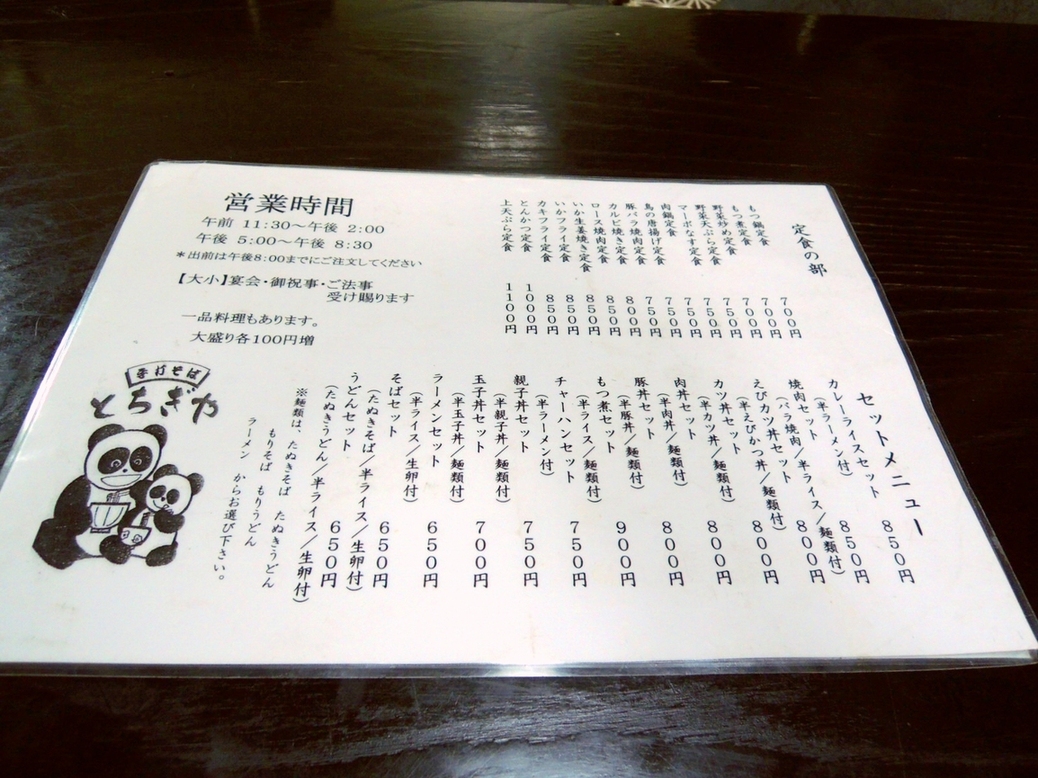 営業時間
午前 11:30～午後 2:00
午後 5:00～午後 8:30
＊出前は午後8:00までにご注文してください
【大小】宴会・御祝事・ご法事
受け賜ります
一品料理もあります。
大盛り各100円増
手打そば
とちぎや
定食の部
もつ鍋定食 ７００円
もつ煮定食 ７００円
野菜炒め定食 ７００円
野菜天ぷら定食 ７５０円
マーボなす定食 ７５０円
肉鍋定食 ７５０円
鳥の唐揚げ定食 ７５０円
豚バラ焼肉定食 ８００円
カルビ焼き定食 ８５０円
ロース焼肉定食 ８５０円
いか生姜焼き定食 ８５０円
いかフライ定食 ８５０円
カキフライ定食 ８５０円
とんかつ定食 １０００円
上天ぷら定食 １１００円
セットメニュー
カレーライスセット ８５０円
（半ラーメン付）
焼肉セット ８５０円
（バラ焼肉／半ライス／麺類付）
えびカツ丼セット ８００円
（半えびかつ丼／麺類付）
カツ丼セット ８００円
（半カツ丼／麺類付）
肉丼セット ８００円
（半肉丼／麺類付）
豚丼セット ８００円
（半豚丼／麺類付）
もつ煮セット ９００円
（半ライス／麺類付）
チャーハンセット ７５０円
（半ラーメン付）
親子丼セット ７５０円
（半親子丼／麺類付）
玉子丼セット ７００円
（半玉子丼／麺類付）
ラーメンセット ６５０円
（半ライス／生卵付）
そばセット ６５０円
（たぬきそば／半ライス／生卵付）
うどんセット ６５０円
（たぬきうどん／半ライス／生卵付）
※麺類は、たぬきそば たぬきうどん
もりそば もりうどん
ラーメン からお選び下さい。